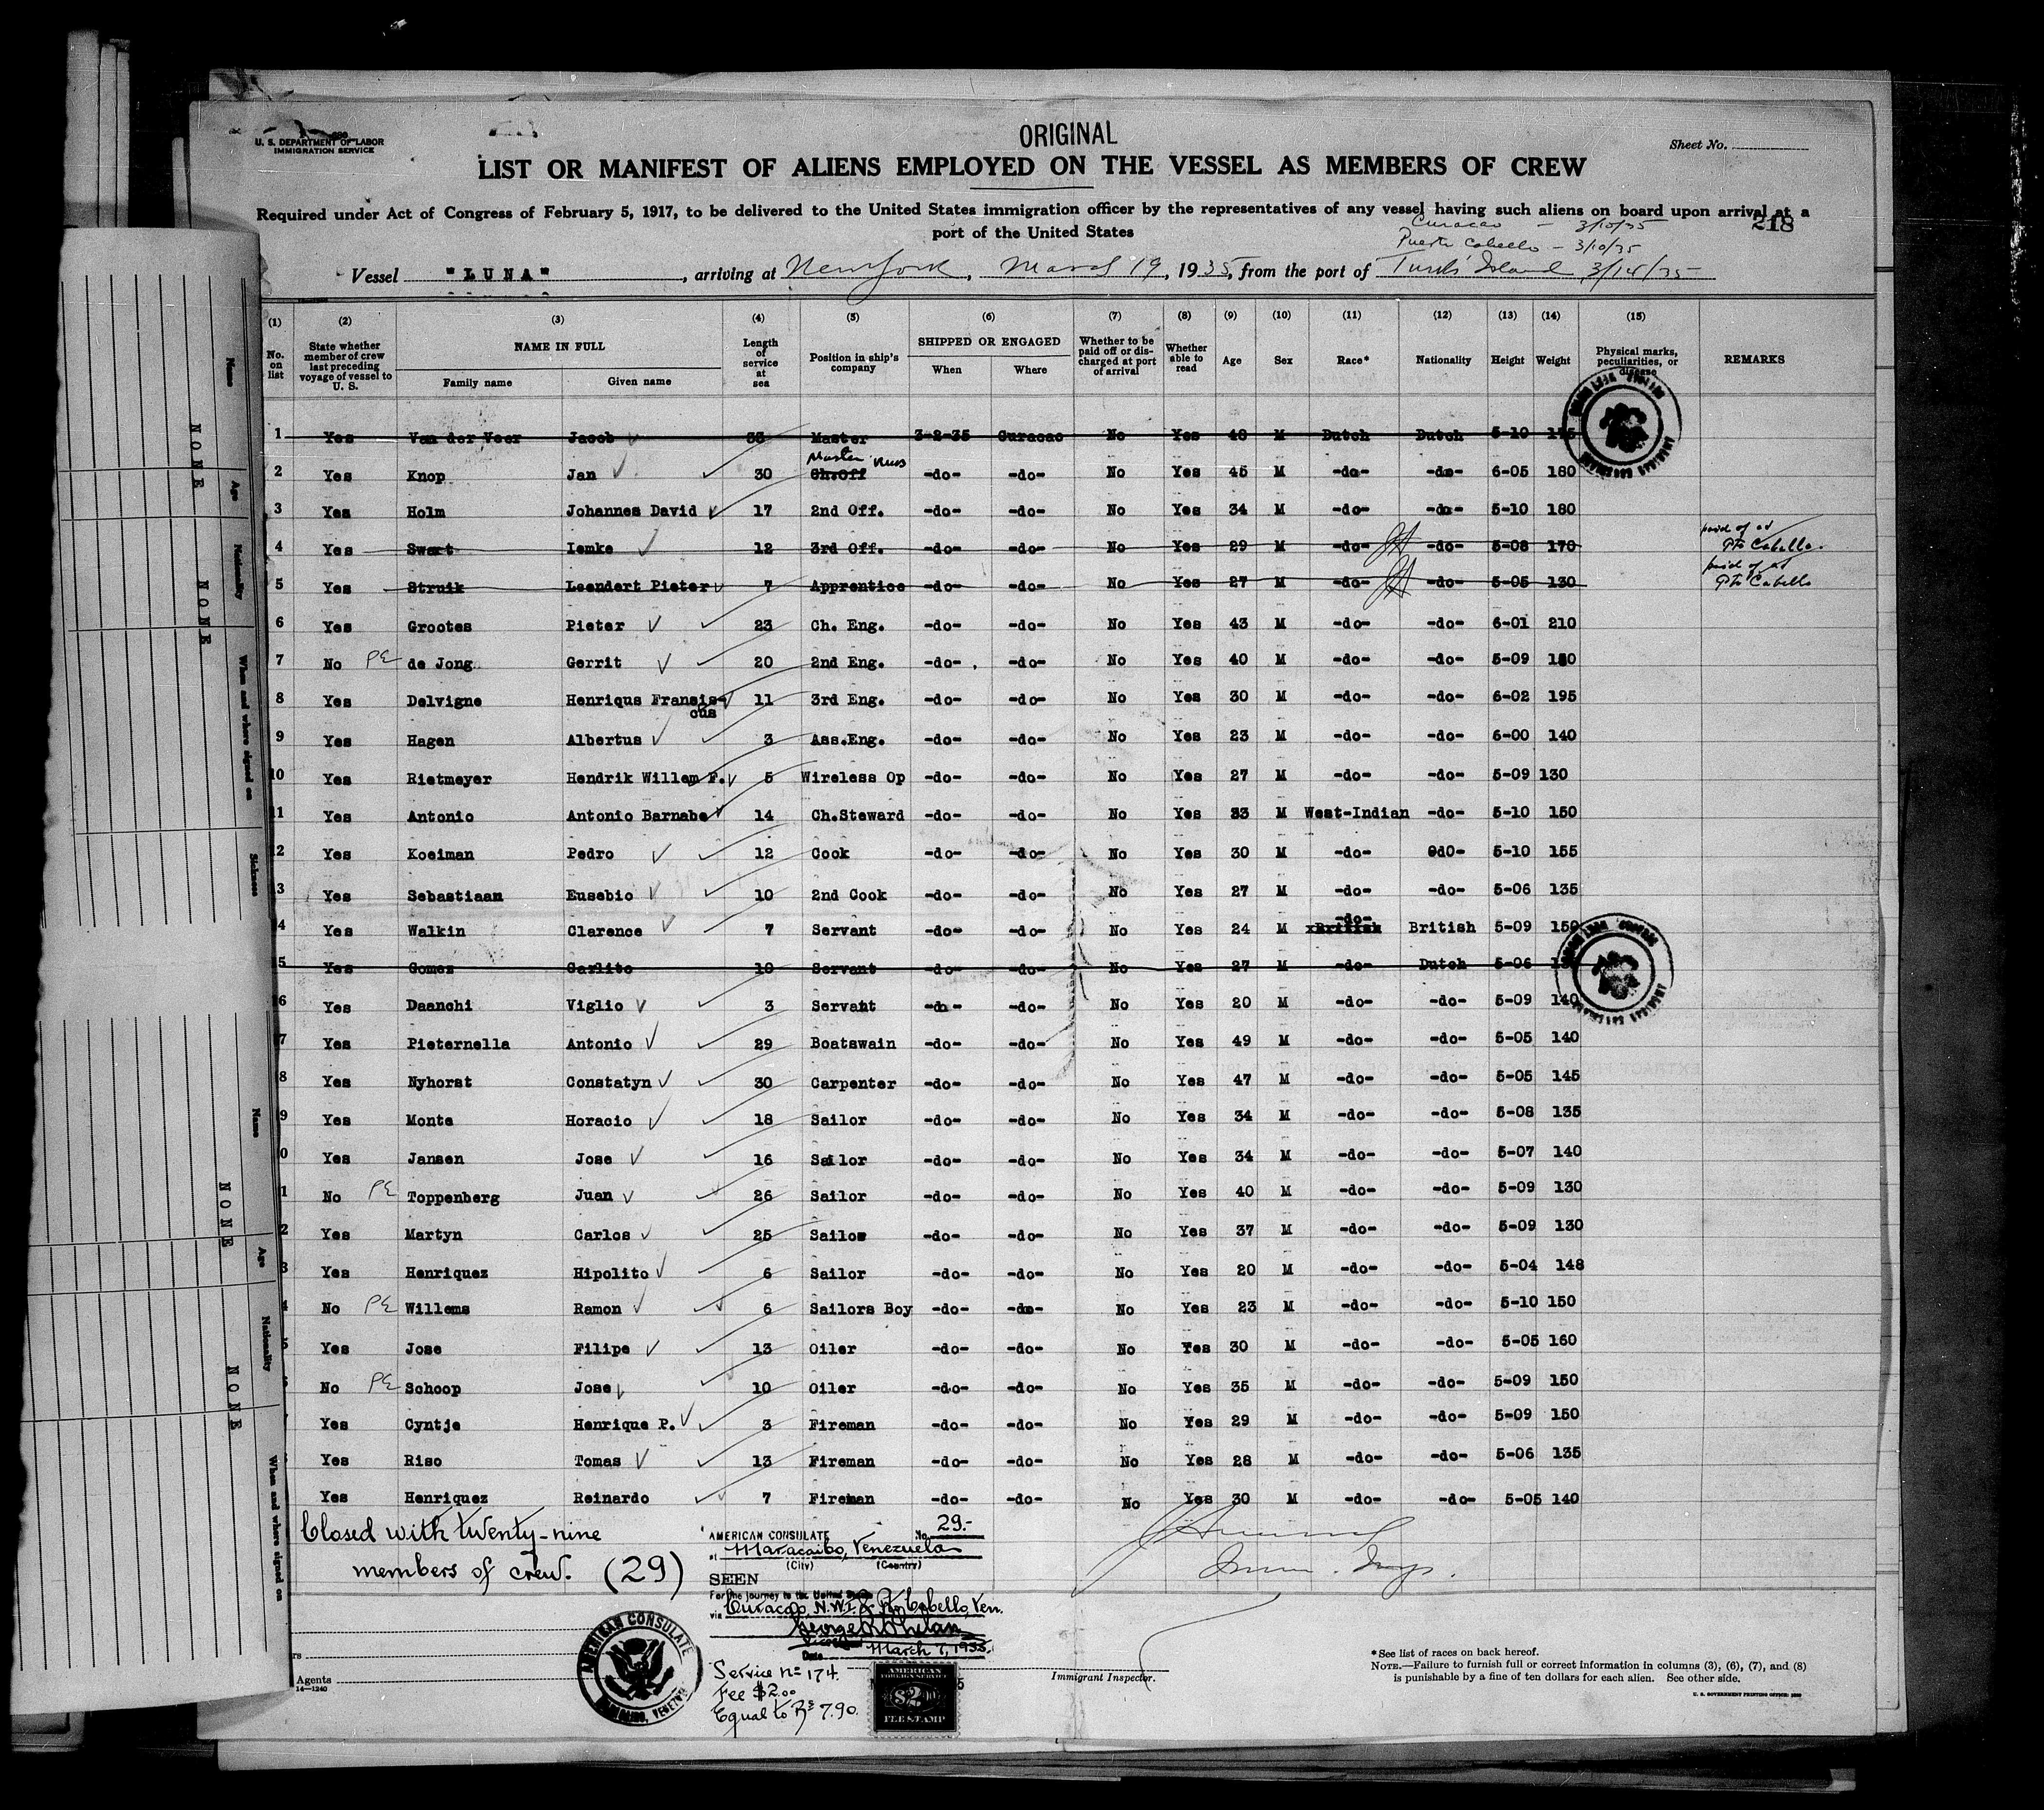 U. S. DEPARTMENT OF LABOR
IMMIGRATION SERVICE
ORIGINAL
Sheet No.
LIST OR MANIFEST OF ALIENS EMPLOYED ON THE VESSEL AS MEMBERS OF CREW
Required under Act of Congress of February 5, 1917, to be delivered to the United States immigration officer by the representatives of any vessel having such aliens on board upon arrival at a
port of the United States
218
Curacao - 3/10/35
Puerto Cabello - 3/10/35
Vessel "LUNA", arriving at New York, March 19, 1935, from the port of Turks Island 3/14/35
(1) (2) (3) (4) (5) (6) (7) (8) (9) (10) (11) (12) (13) (14) (15)
No. on list State whether member of crew last preceding voyage of vessel to U. S. NAME IN FULL Family name Given name Length of service at sea Position in ship's company SHIPPED OR ENGAGED When Where Whether to be paid off or discharged at port of arrival Whether able to read Age Sex Race* Nationality Height Weight Physical marks, peculiarities, or disease REMARKS
1 Yes Van der Veer Jacob 33 Master 3-2-35 Curacao No Yes 48 M Dutch Dutch 5-10 175
Master
2 Yes Knop Jan 30 Ch.Off -do- -do- No Yes 45 M -do- -do- 6-05 180
3 Yes Holm Johannes David 17 2nd Off. -do- -do- No Yes 34 M -do- -do- 5-10 180
4 Yes Swart Iemke 12 3rd Off. -do- -do- No Yes 29 M -do- -do- 5-08 170 paid of at Pto Cabello.
5 Yes Struik Leendert Pieter 7 Apprentice -do- -do- No Yes 27 M -do- -do- 5-05 130 paid of at Pto Cabello
6 Yes Grootes Pieter 23 Ch. Eng. -do- -do- No Yes 43 M -do- -do- 6-01 210
7 No PE de Jong Gerrit 20 2nd Eng. -do- -do- No Yes 40 M -do- -do- 5-09 180
8 Yes Delvigne Henriqus Fransis-cus 11 3rd Eng. -do- -do- No Yes 30 M -do- -do- 6-02 195
9 Yes Hagen Albertus 3 Ass.Eng. -do- -do- No Yes 23 M -do- -do- 6-00 140
10 Yes Rietmeyer Hendrik Willem F. 5 Wireless Op -do- -do- No Yes 27 M -do- -do- 5-09 130
11 Yes Antonio Antonio Barnabe 14 Ch.Steward -do- -do- No Yes 33 M West-Indian -do- 5-10 150
12 Yes Koeiman Pedro 12 Cook -do- -do- No Yes 30 M -do- 0d0- 5-10 155
3 Yes Sebastiaan Eusebio 10 2nd Cook -do- -do- No Yes 27 M -do- -do- 5-06 135
4 Yes Walkin Clarence 7 Servant -do- -do- No Yes 24 M -do- xBritish British 5-09 150
5 Yes Gomez Carlito 10 Servant -do- -do- No Yes 27 M -do- Dutch 5-06
6 Yes Daanchi Viglio 3 Servant -do- -do- No Yes 20 M -do- -do- 5-09 140
7 Yes Pieternella Antonio 29 Boatswain -do- -do- No Yes 49 M -do- -do- 5-05 140
8 Yes Nyhorst Constatyn 30 Carpenter -do- -do- No Yes 47 M -do- -do- 5-05 145
9 Yes Monte Horacio 18 Sailor -do- -do- No Yes 34 M -do- -do- 5-08 135
0 Yes Jansen Jose 16 Sailor -do- -do- No Yes 34 M -do- -do- 5-07 140
1 No PE Toppenberg Juan 26 Sailor -do- -do- No Yes 40 M -do- -do- 5-09 130
2 Yes Martyn Carlos 25 Sailor -do- -do- No Yes 37 M -do- -do- 5-09 130
3 Yes Henriquez Hipolito 6 Sailor -do- -do- No Yes 20 M -do- -do- 5-04 148
4 No PE Willems Ramon 6 Sailors Boy -do- -do- No Yes 23 M -do- -do- 5-10 150
5 Yes Jose Filipe 13 Oiler -do- -do- No Yes 30 M -do- -do- 5-05 160
No PE Schoop Jose 10 Oiler -do- -do- No Yes 35 M -do- -do- 5-09 150
Yes Cyntje Henrique P. 3 Fireman -do- -do- No Yes 29 M -do- -do- 5-09 150
Yes Riso Tomas 13 Fireman -do- -do- No Yes 28 M -do- -do- 5-06 135
Yes Henriquez Reinardo 7 Fireman -do- -do- No Yes 30 M -do- -do- 5-05 140
Closed with twenty-nine
members of crew. (29)
AMERICAN CONSULATE No. 29.-
at Maracaibo, Venezuela
(City) (Country)
SEEN
For the journey to the United States
via Curacao, N.W.I. & Pto Cabello, Ven.
George R Phelan
Date March 7, 1935.
Service no 174.
Fee $2.00
Equal to Bs 7.90.
AMERICAN CONSULATE
MARACAIBO, VENEZUELA
AMERICAN
FOREIGN SERVICE
$2.00
FEE STAMP
Immigrant Inspector.
Agents
14-1240
*See list of races on back hereof.
NOTE.—Failure to furnish full or correct information in columns (3), (6), (7), and (8)
is punishable by a fine of ten dollars for each alien. See other side.
Name
Age
Nationality
When and where signed on
Sickness
NONE
NONE
Name
Age
Nationality
When and where signed on
NONE
NONE